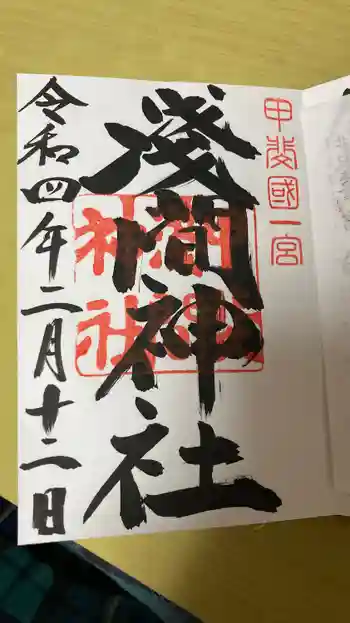 甲斐國一宮
淺間神社
淺間神社
令和四年二月十二日